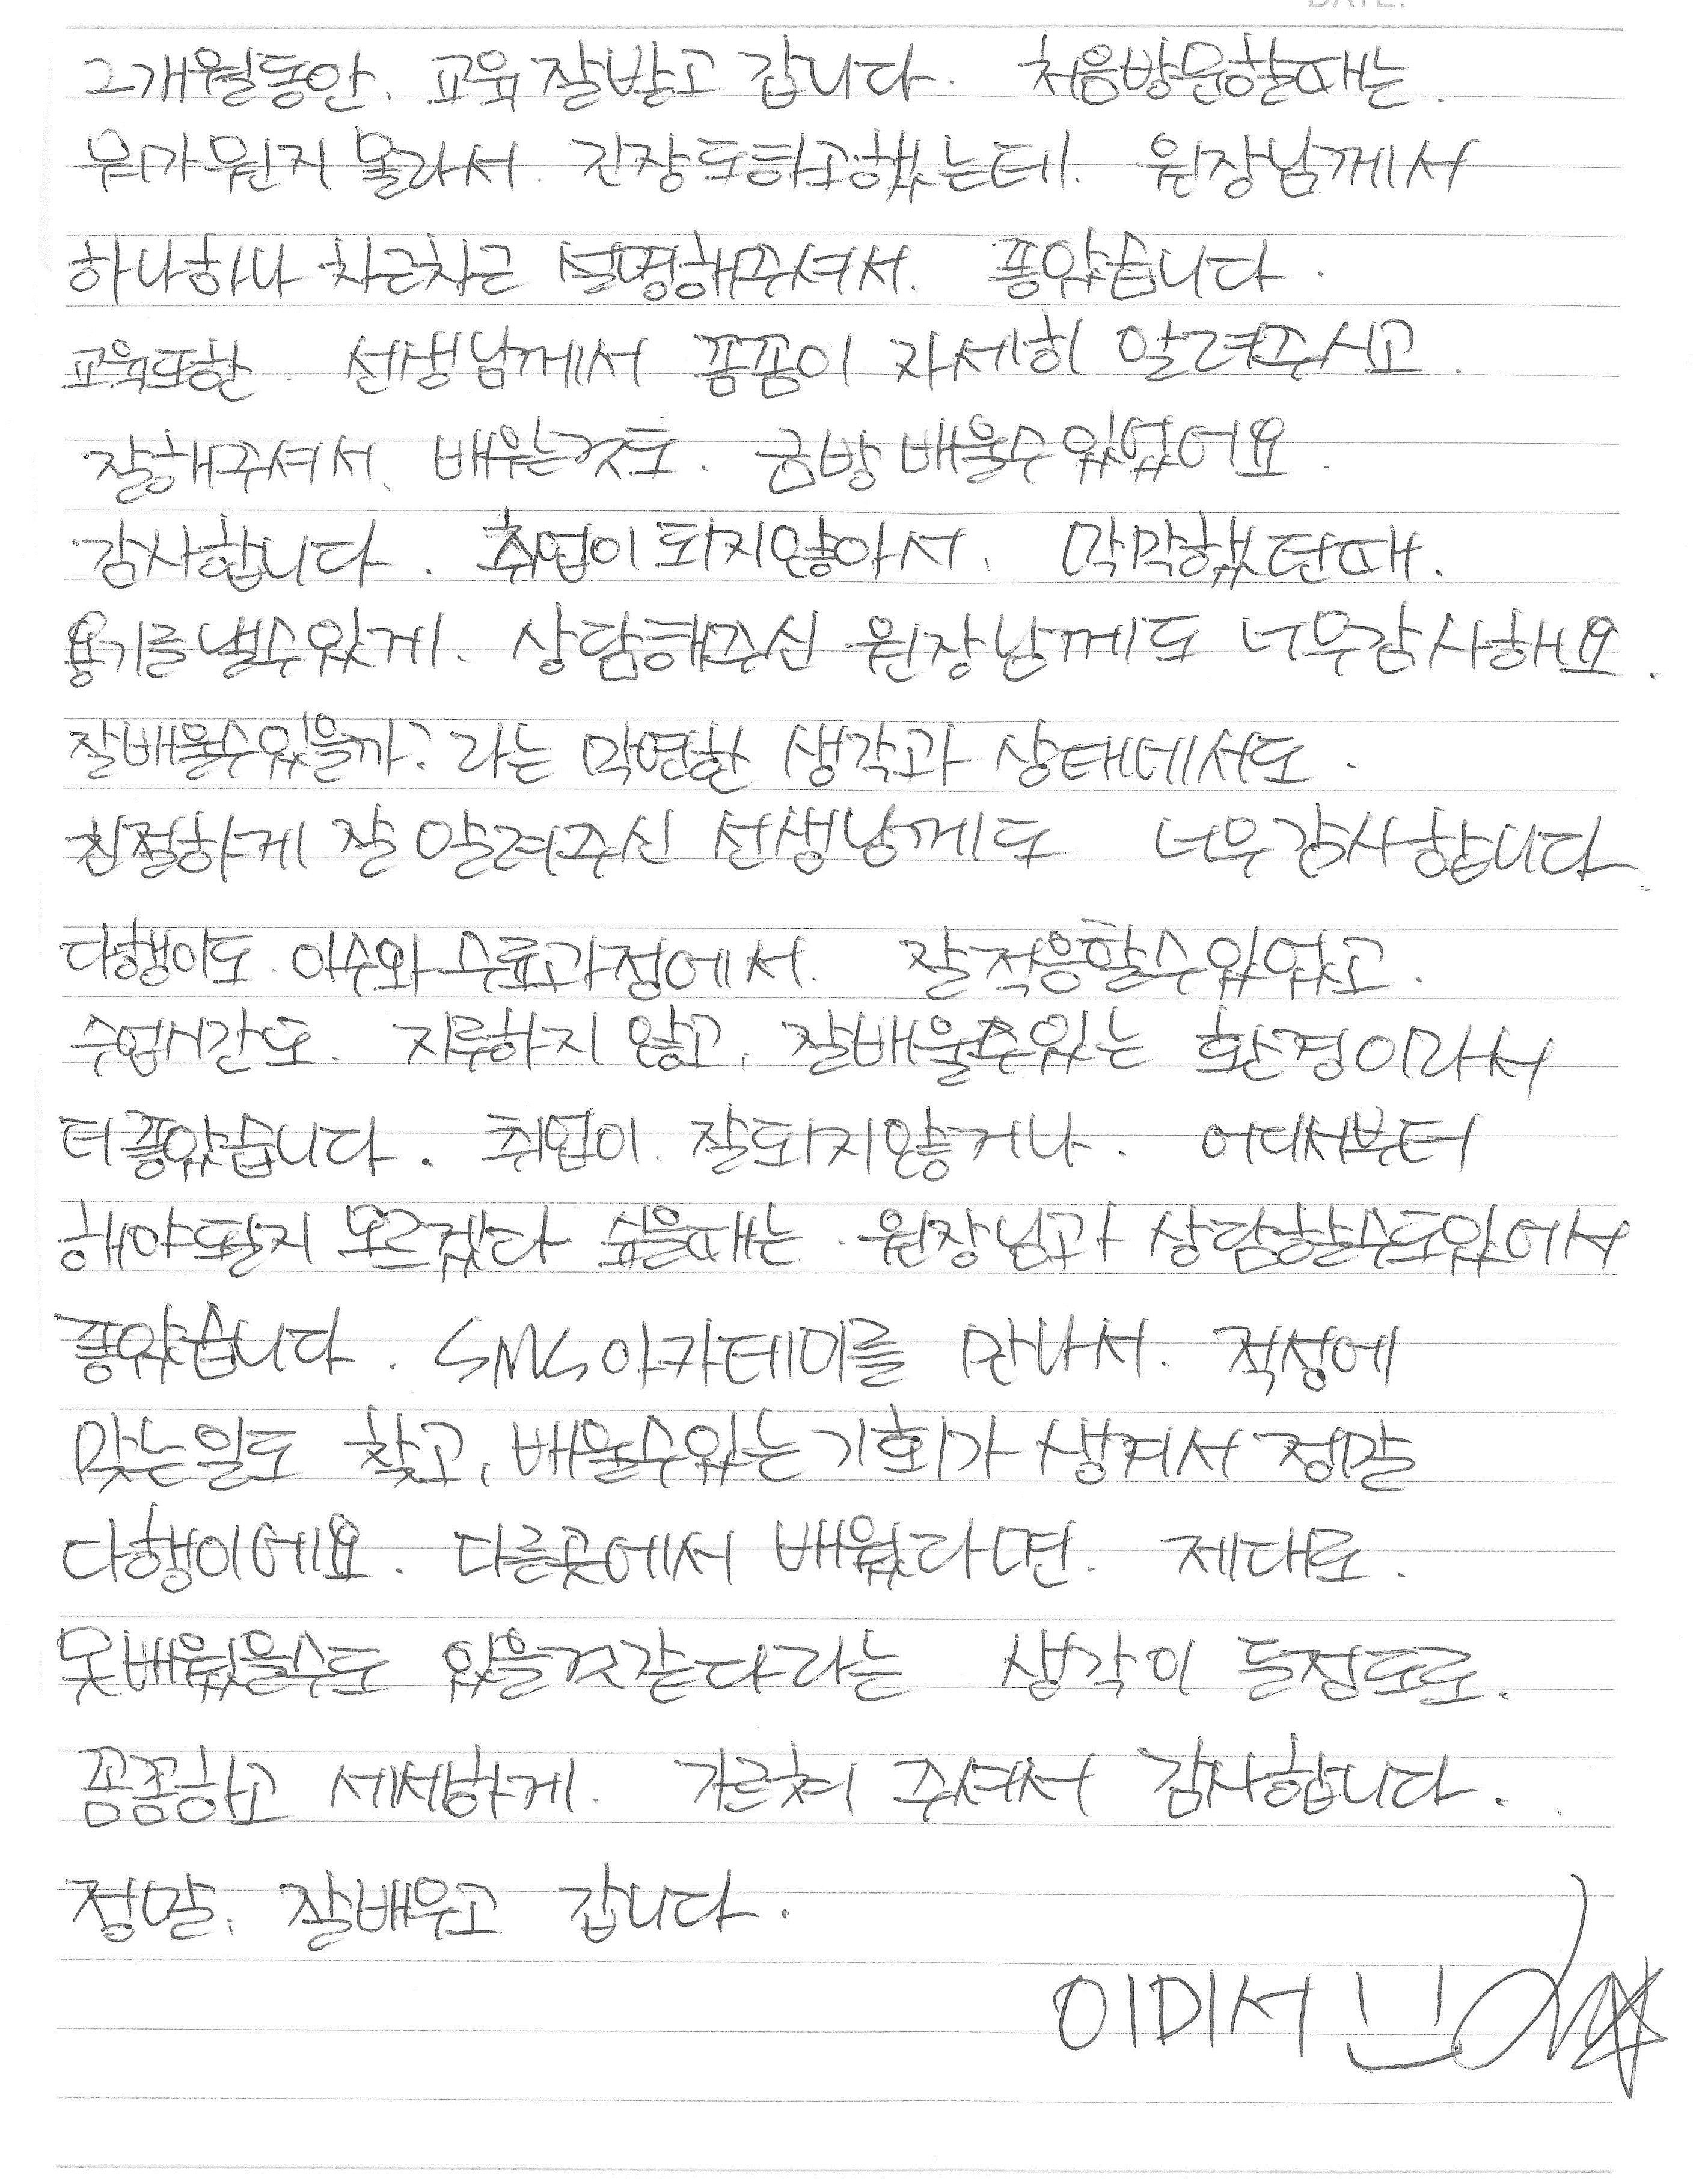 2개월동안. 교육 잘받고 갑니다. 처음방문할때는.
뭐가뭔지 몰라서. 긴장도하고했는데. 원장님께서
하나하나 차근차근 설명해주셔서. 좋았습니다.
교육또한. 선생님께서 꼼꼼이 자세히 알려주시고.
잘해주셔서. 배우는것도. 금방 배울수있었어요.
감사합니다. 취업이 되지않아서. 막막했던때.
용기를낼수있게. 상담해주신 원장님께도 너무감사해요.
잘배울수있을까? 라는 막연한 생각과 상태에서도.
친절하게 잘 알려주신 선생님께도 너무감사합니다.
다행이도. 이수와 수료과정에서. 잘적응할수있었고.
수업시간도. 지루하지 않고, 잘배울수있는 환경이라서
더좋았습니다. 취업이. 잘되지않거나. 어디서부터
해야될지 모르겠다 싶을때는. 원장님과 상담할수도있어서
좋았습니다. SMS아카데미를 만나서. 적성에
맞는일도 찾고, 배울수있는기회가 생겨서 정말
다행이에요. 다른곳에서 배웠다면. 제대로.
못배웠을수도 있을것같단다라는 생각이 들정도로.
꼼꼼하고 세세하게. 가르쳐 주셔서 감사합니다.
정말. 잘배우고 갑니다.
이미서